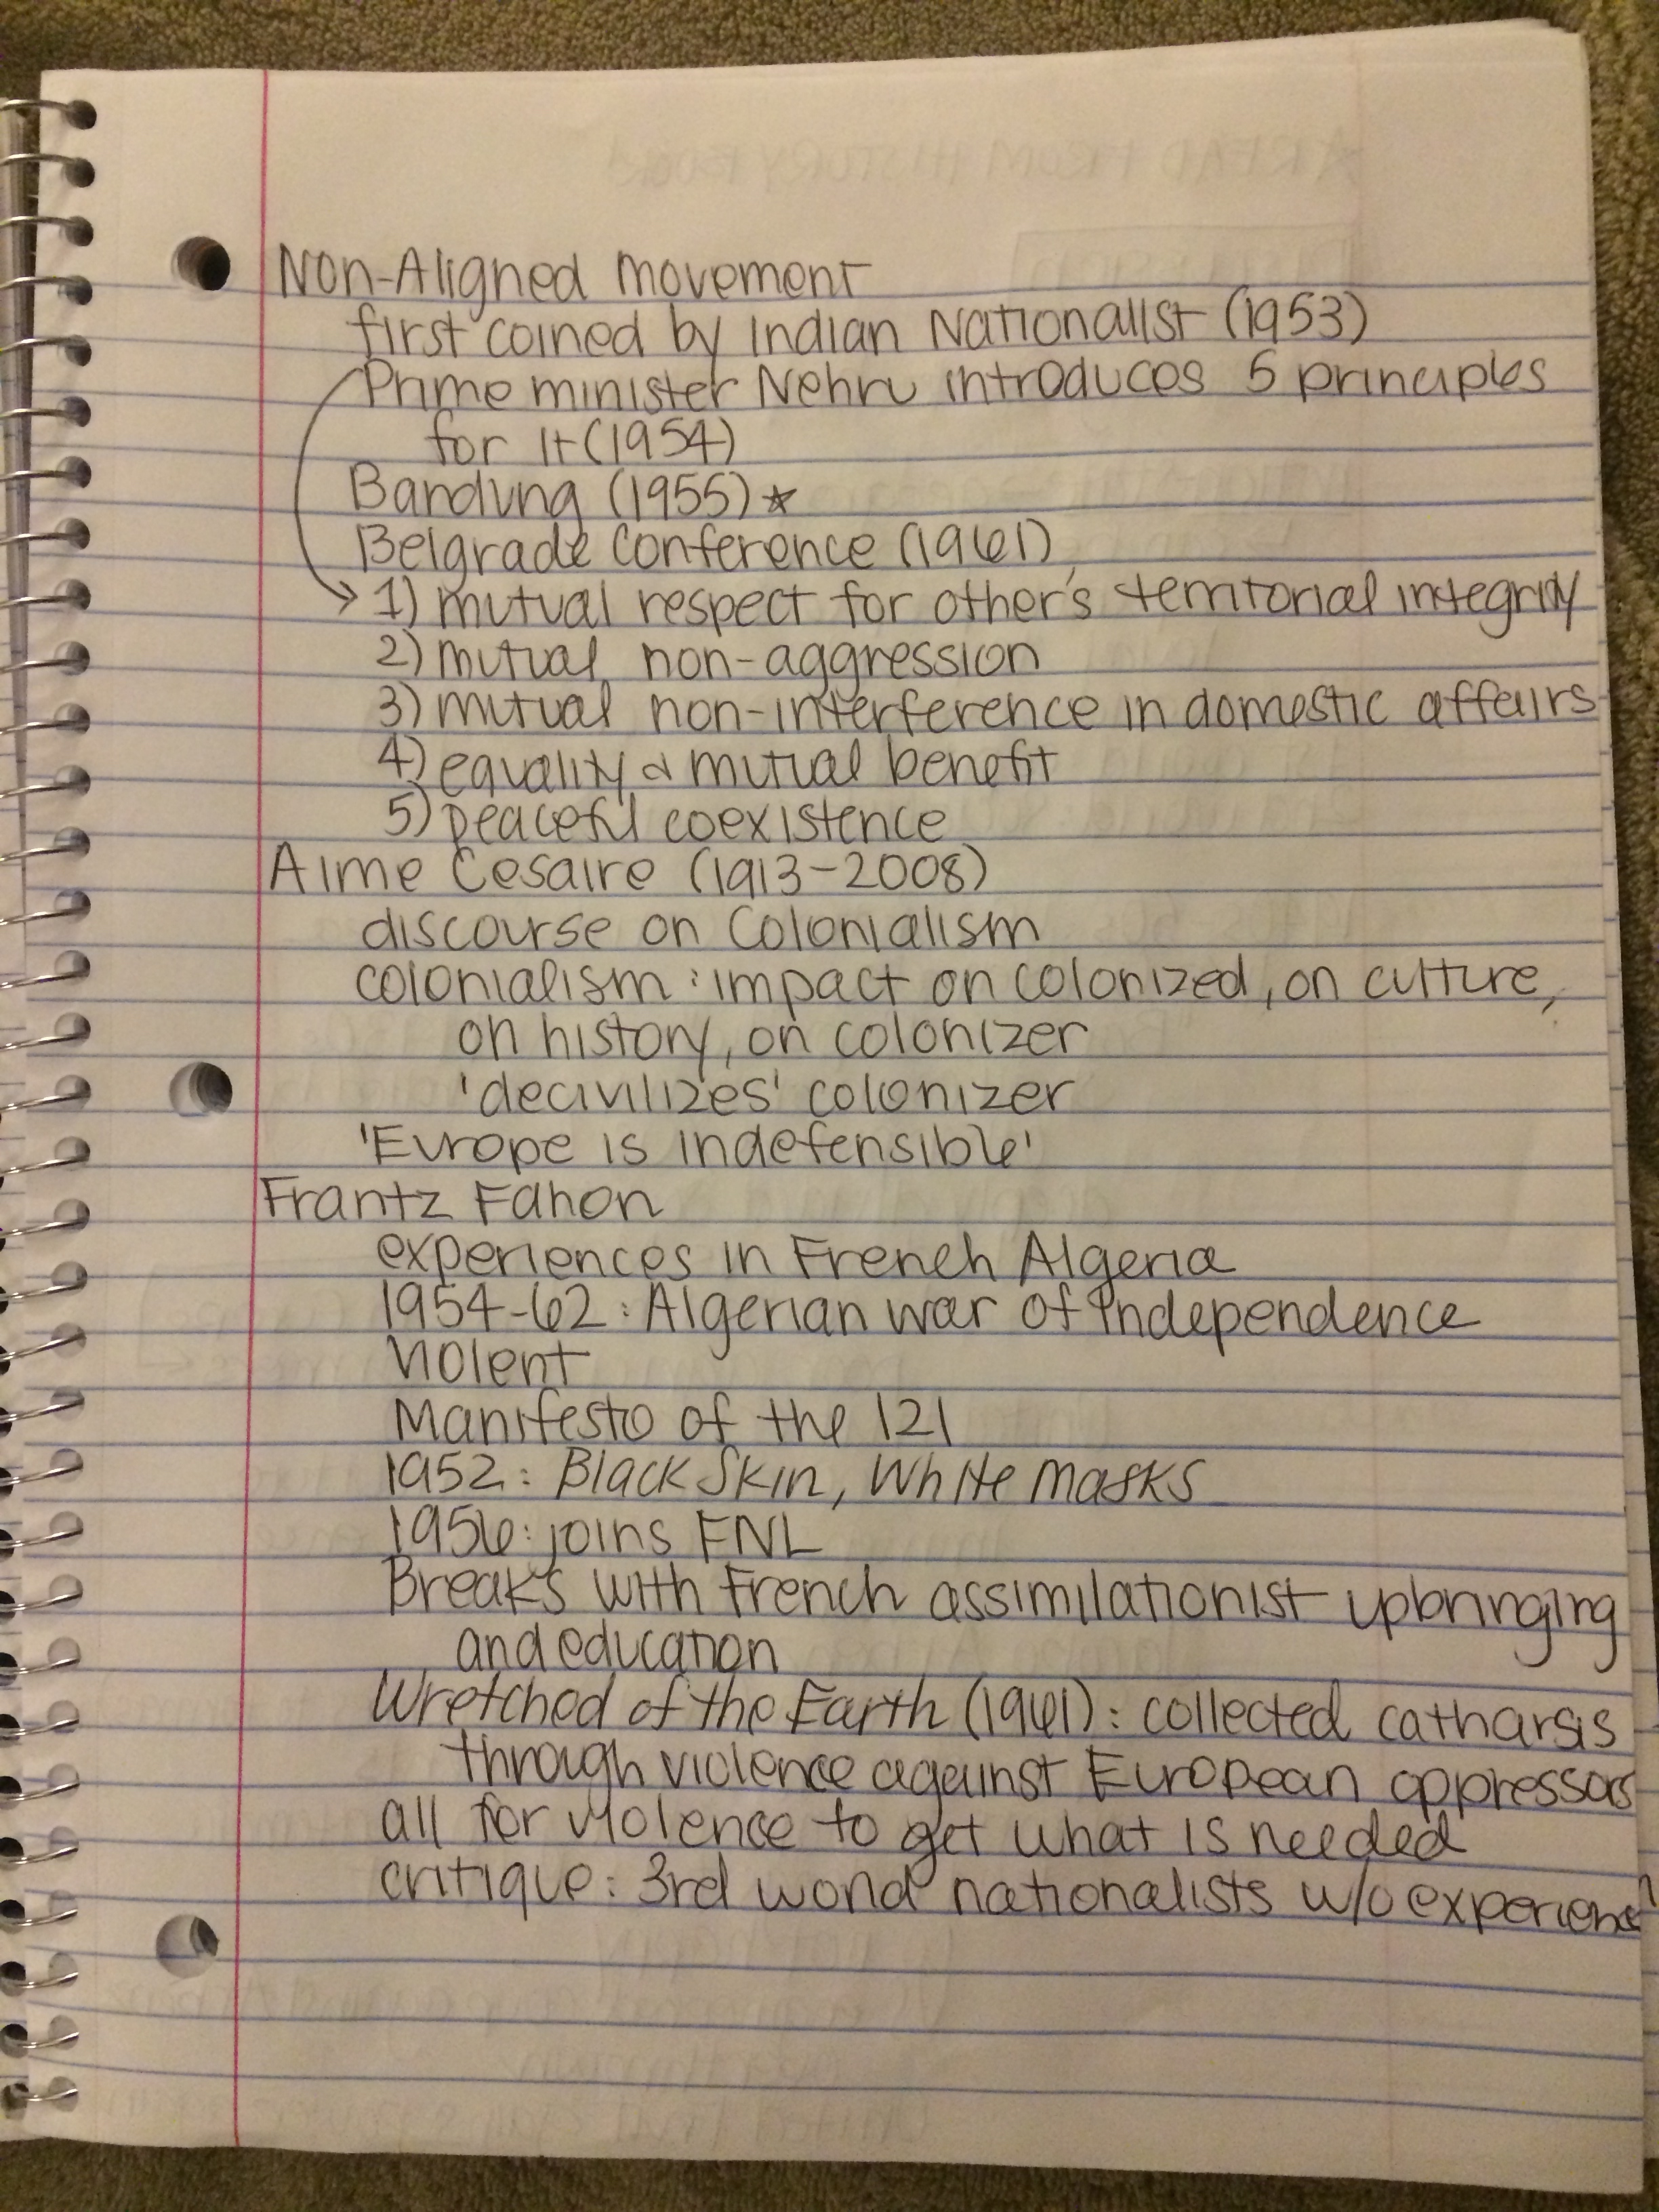 Non-Aligned Movement
first coined by Indian Nationalist (1953)
Prime minister Nehru introduces 5 principles
for it (1954)
Bandung (1955) ☆
Belgrade Conference (1961)
→ 1) mutual respect for other's territorial integrity
2) mutual non-aggression
3) mutual non-interference in domestic affairs
4) equality & mutual benefit
5) peaceful coexistence
Aime Cesaire (1913-2008)
discourse on Colonialism
colonialism: impact on colonized, on culture,
on history, on colonizer
'decivilizes' colonizer
'Europe is indefensible'
Frantz Fanon
experiences in French Algeria
1954-62: Algerian war of Independence
violent
Manifesto of the 121
1952: Black Skin, White Masks
1956: joins FNL
Breaks with French assimilationist upbringing
and education
Wretched of the Earth (1961): collected catharsis
through violence against European oppressors
all for violence to get what is needed
critique: 3rd world nationalists w/o experience